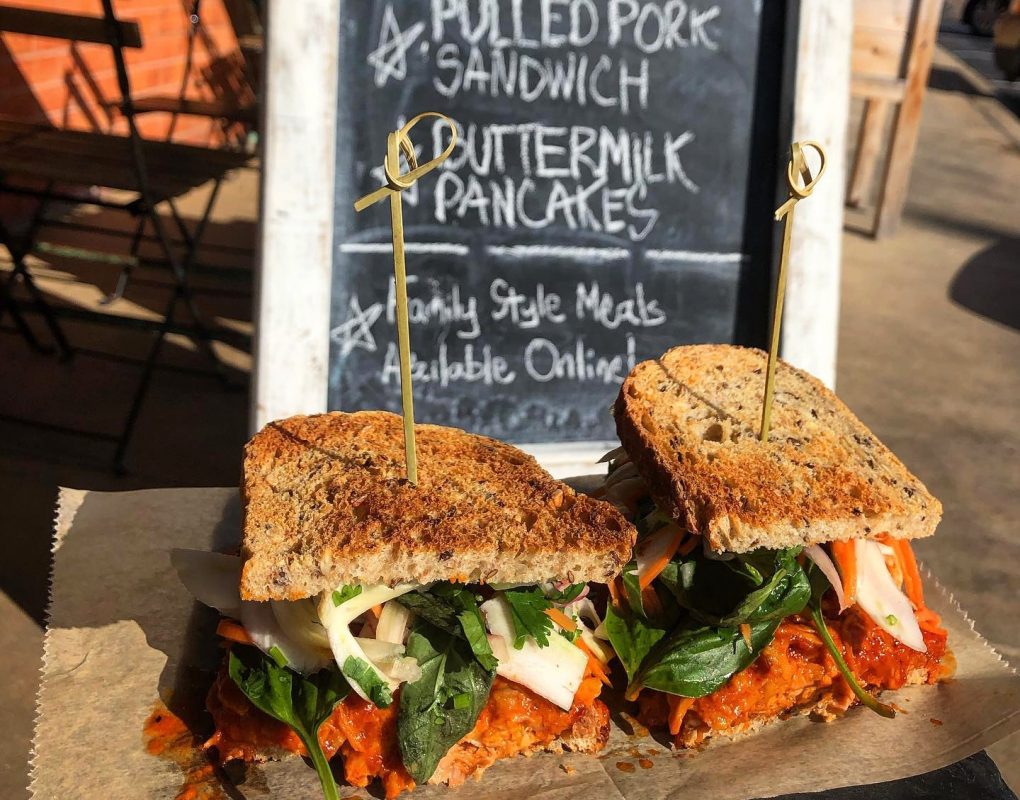 PULLED PORK
SANDWICH
BUTTERMILK
PANCAKES
Family Style Meals
Available Online!